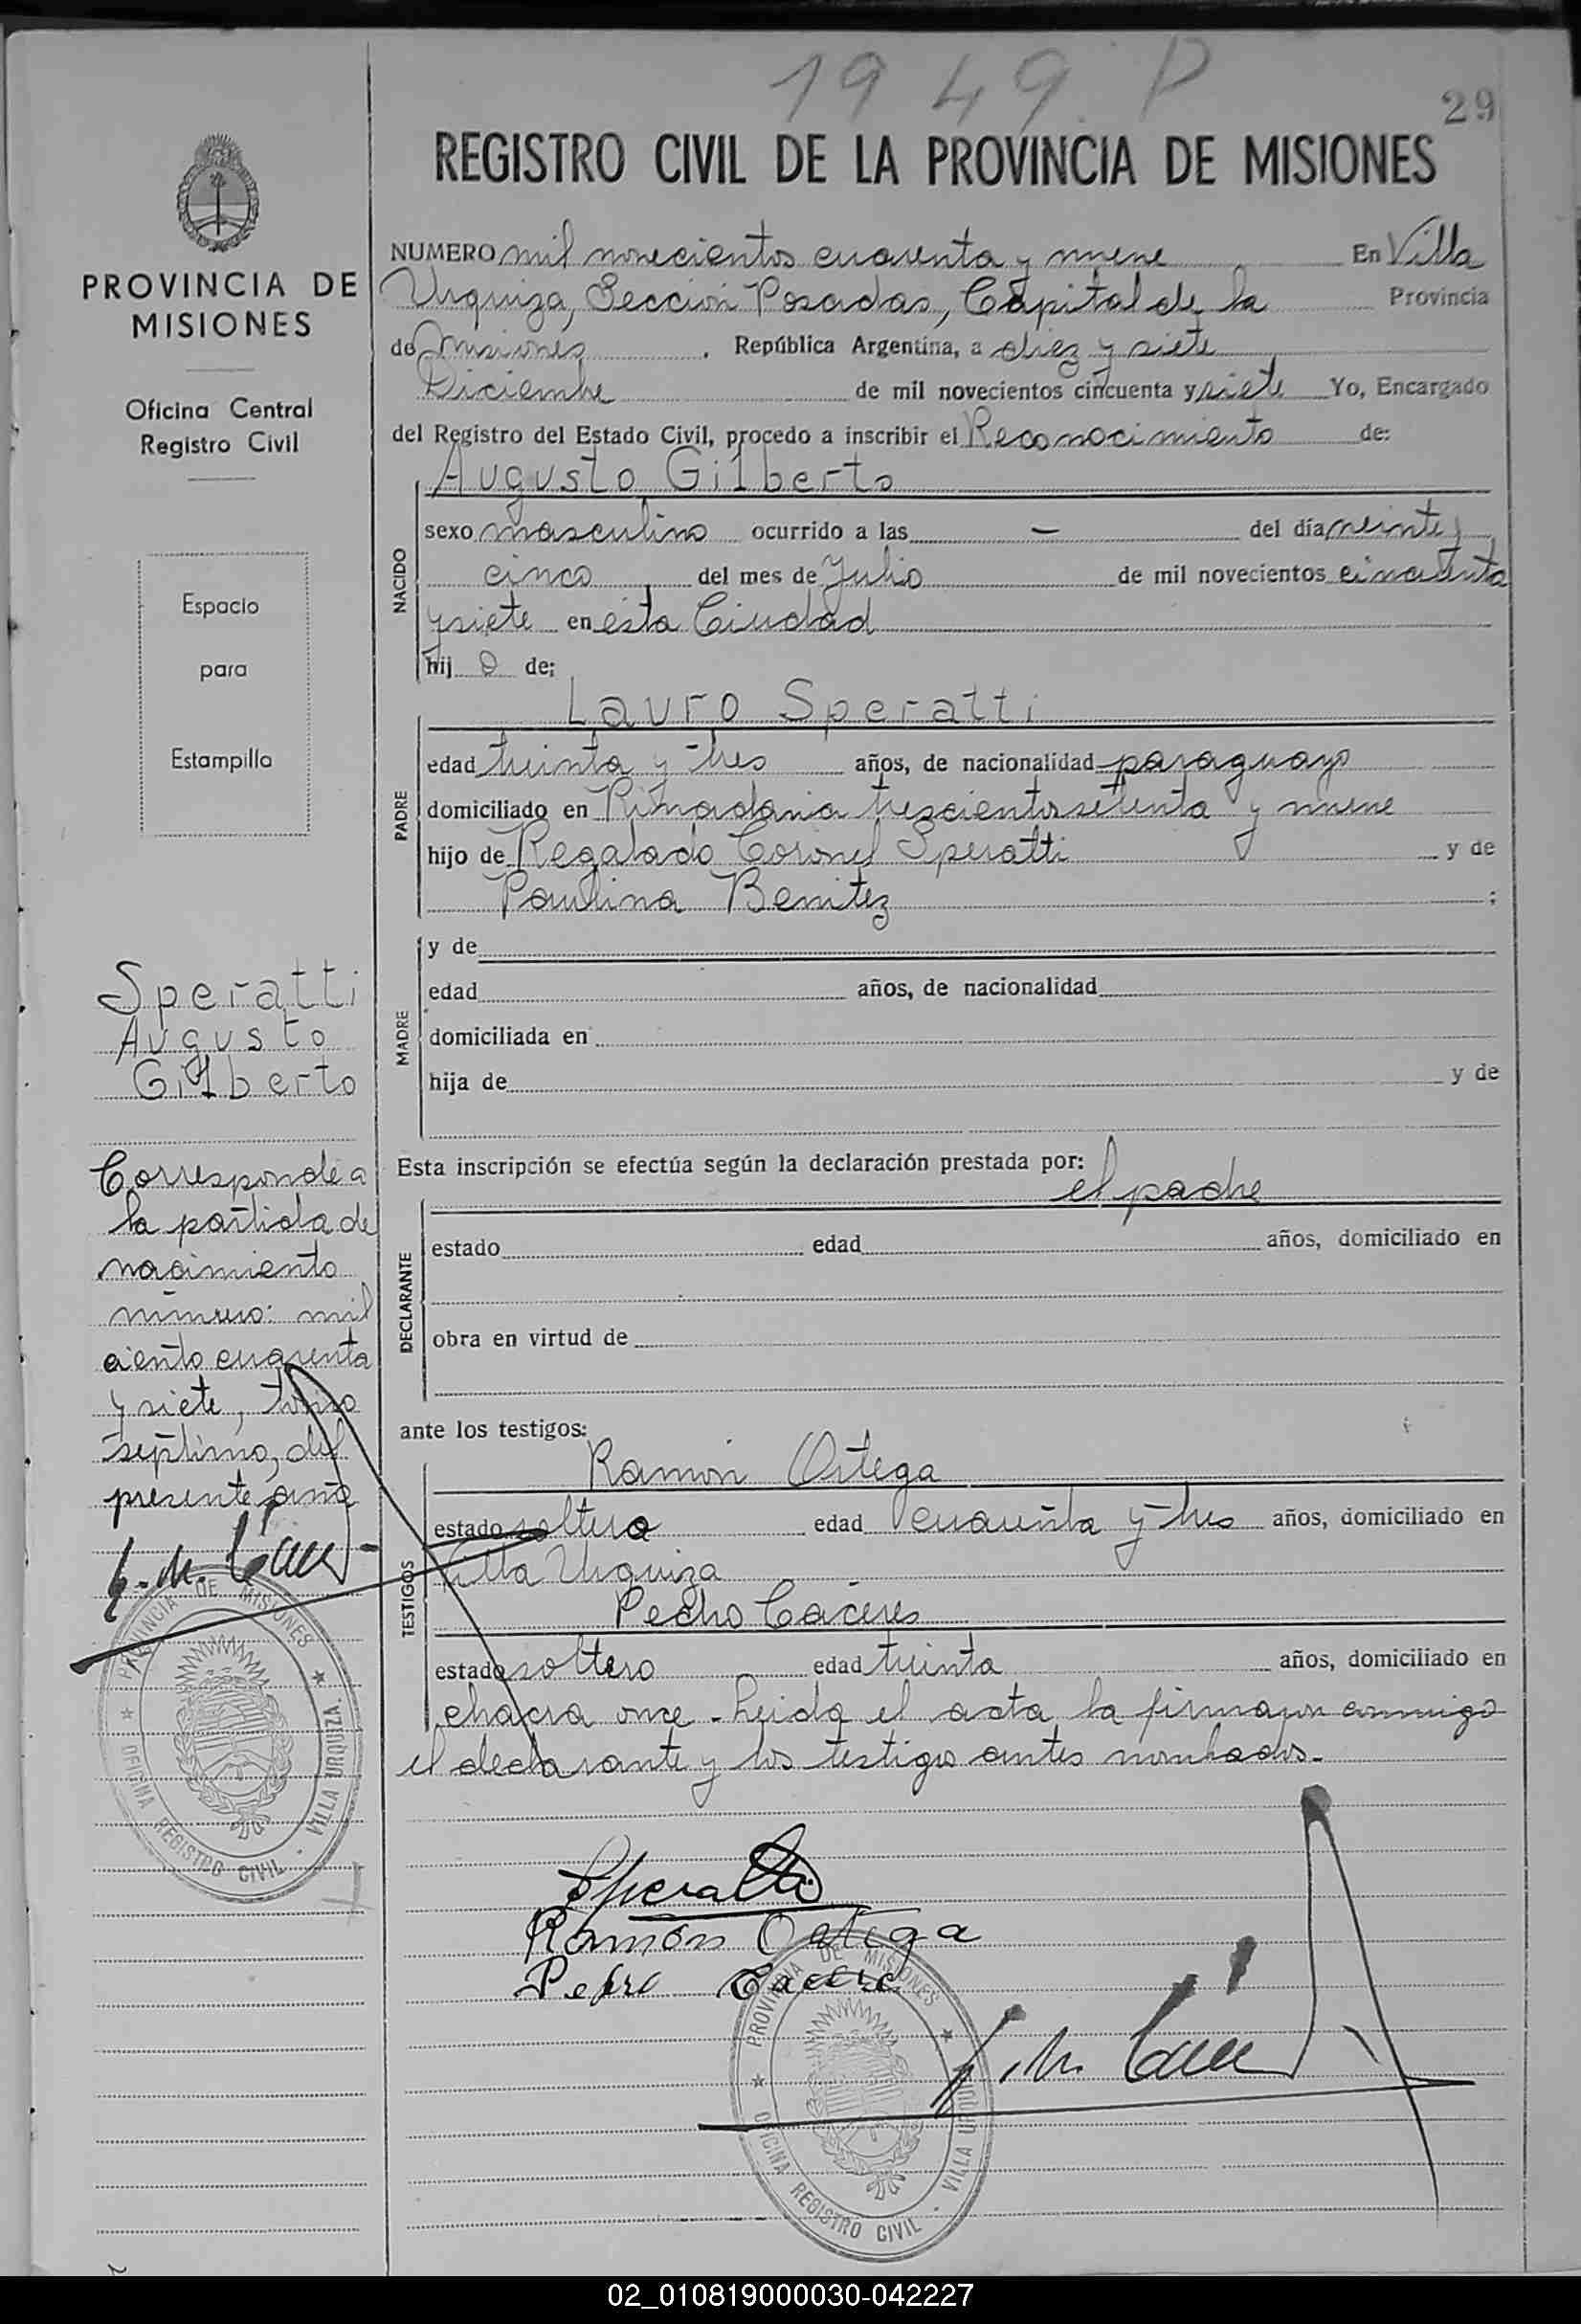 1949 P
29
REGISTRO CIVIL DE LA PROVINCIA DE MISIONES
PROVINCIA DE
MISIONES
Oficina Central
Registro Civil
Espacio
para
Estampilla
Speratti
Augusto
Gilberto
Corresponde a
la partida de
nacimiento
número: mil
ciento cuarenta
y siete, tomo
septimo, del
presente año
PROVINCIA DE MISIONES
OFICINA REGISTRO CIVIL - VILLA URQUIZA
NUMERO mil novecientos cuarenta y nueve En Villa
Urquiza, Sección Posadas, Capital de la Provincia
de Misiones. República Argentina, a diez y siete
Diciembre de mil novecientos cincuenta y siete Yo, Encargado
del Registro del Estado Civil, procedo a inscribir el Reconocimiento de:
Augusto Gilberto
NACIDO
sexo masculino ocurrido a las — del día veinte y
cinco del mes de Julio de mil novecientos cincuenta
y siete en esta Ciudad
hijo de;
Lauro Speratti
PADRE
edad treinta y tres años, de nacionalidad paraguayo
domiciliado en Rivadavia trescientos setenta y nueve
hijo de Regalado Coronel Speratti y de
Paulina Benitez ;
MADRE
y de
edad años, de nacionalidad
domiciliada en
hija de y de
Esta inscripción se efectúa según la declaración prestada por:
el padre
DECLARANTE
estado edad años, domiciliado en
obra en virtud de
ante los testigos:
Ramón Ortega
TESTIGOS
estado soltero edad cuarenta y tres años, domiciliado en
Villa Urquiza
Pedro Cáceres
estado soltero edad treinta años, domiciliado en
chacra once - Leida el acta la firmaron conmigo
el declarante y los testigos antes nombrados.-
Speratti
Ramón Ortega
Pedro
PROVINCIA DE MISIONES
OFICINA REGISTRO CIVIL - VILLA URQUIZA
02_010819000030-042227